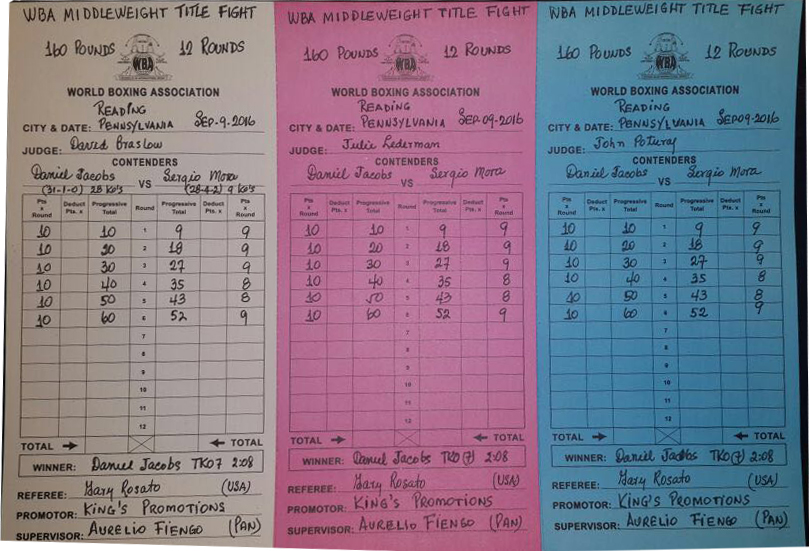 WBA MIDDLEWEIGHT TITLE FIGHT
160 POUNDS WBA 12 ROUNDS
WORLD BOXING ASSOCIATION
READING
CITY & DATE: PENNSYLVANIA SEP-9-2016
JUDGE: David Braslow
CONTENDERS
Daniel Jacobs VS Sergio Mora
(31-1-0) 28 KO's (28-4-2) 9 KO's
Pts x Round Deduct Pts. x Progressive Total Round Progressive Total Deduct Pts. x Pts x Round
10 10 1 9 9
10 20 2 18 9
10 30 3 27 9
10 40 4 35 8
10 50 5 43 8
10 60 6 52 9
7
8
9
10
11
12
TOTAL TOTAL
WINNER: Daniel Jacobs TKO7 2:08
REFEREE: Gary Rosato (USA)
PROMOTOR: KING'S PROMOTIONS
SUPERVISOR: AURELIO FIENGO (PAN)
WBA MIDDLEWEIGHT TITLE FIGHT
160 POUNDS WBA 12 ROUNDS
WORLD BOXING ASSOCIATION
READING
CITY & DATE: PENNSYLVANIA SEP-09-2016
JUDGE: Julie Lederman
CONTENDERS
Daniel Jacobs VS Sergio Mora
Pts x Round Deduct Pts. x Progressive Total Round Progressive Total Deduct Pts. x Pts x Round
10 10 1 9 9
10 20 2 18 9
10 30 3 27 9
10 40 4 35 8
10 50 5 43 8
10 60 6 52 9
7
8
9
10
11
12
TOTAL TOTAL
WINNER: Daniel Jacobs TKO(7) 2:08
REFEREE: Gary Rosato (USA)
PROMOTOR: KING'S PROMOTIONS
SUPERVISOR: AURELIO FIENGO (PAN)
WBA MIDDLEWEIGHT TITLE FIGHT
160 POUNDS WBA 12 ROUNDS
WORLD BOXING ASSOCIATION
READING
CITY & DATE: PENNSYLVANIA SEP09-2016
JUDGE: John Poturaj
CONTENDERS
Daniel Jacobs VS Sergio Mora
Pts x Round Deduct Pts. x Progressive Total Round Progressive Total Deduct Pts. x Pts x Round
10 10 1 9 9
10 20 2 18 9
10 30 3 27 9
10 40 4 35 8
10 50 5 43 8
10 60 6 52 9
7
8
9
10
11
12
TOTAL TOTAL
WINNER: Daniel Jacobs TKO(7) 2:08
REFEREE: Gary Rosato (USA)
PROMOTOR: KING'S PROMOTIONS
SUPERVISOR: AURELIO FIENGO (PAN)